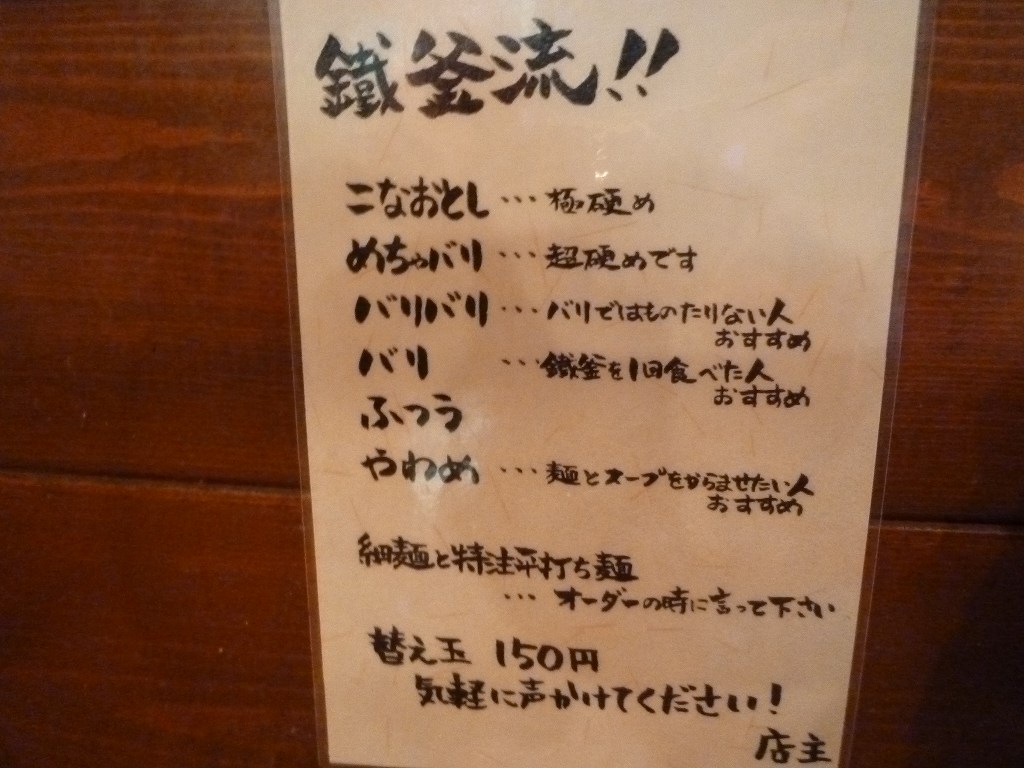 鐵釜流!!
こなおとし…極硬め
めちゃバリ…超硬めです
バリバリ…バリではものたりない人
おすすめ
バリ…鐵釜を1回食べた人
おすすめ
ふつう
やわめ…麺とスープをからませたい人
おすすめ
細麺と特注平打ち麺
…オーダーの時に言って下さい
替え玉 150円
気軽に声かけてください!
店主